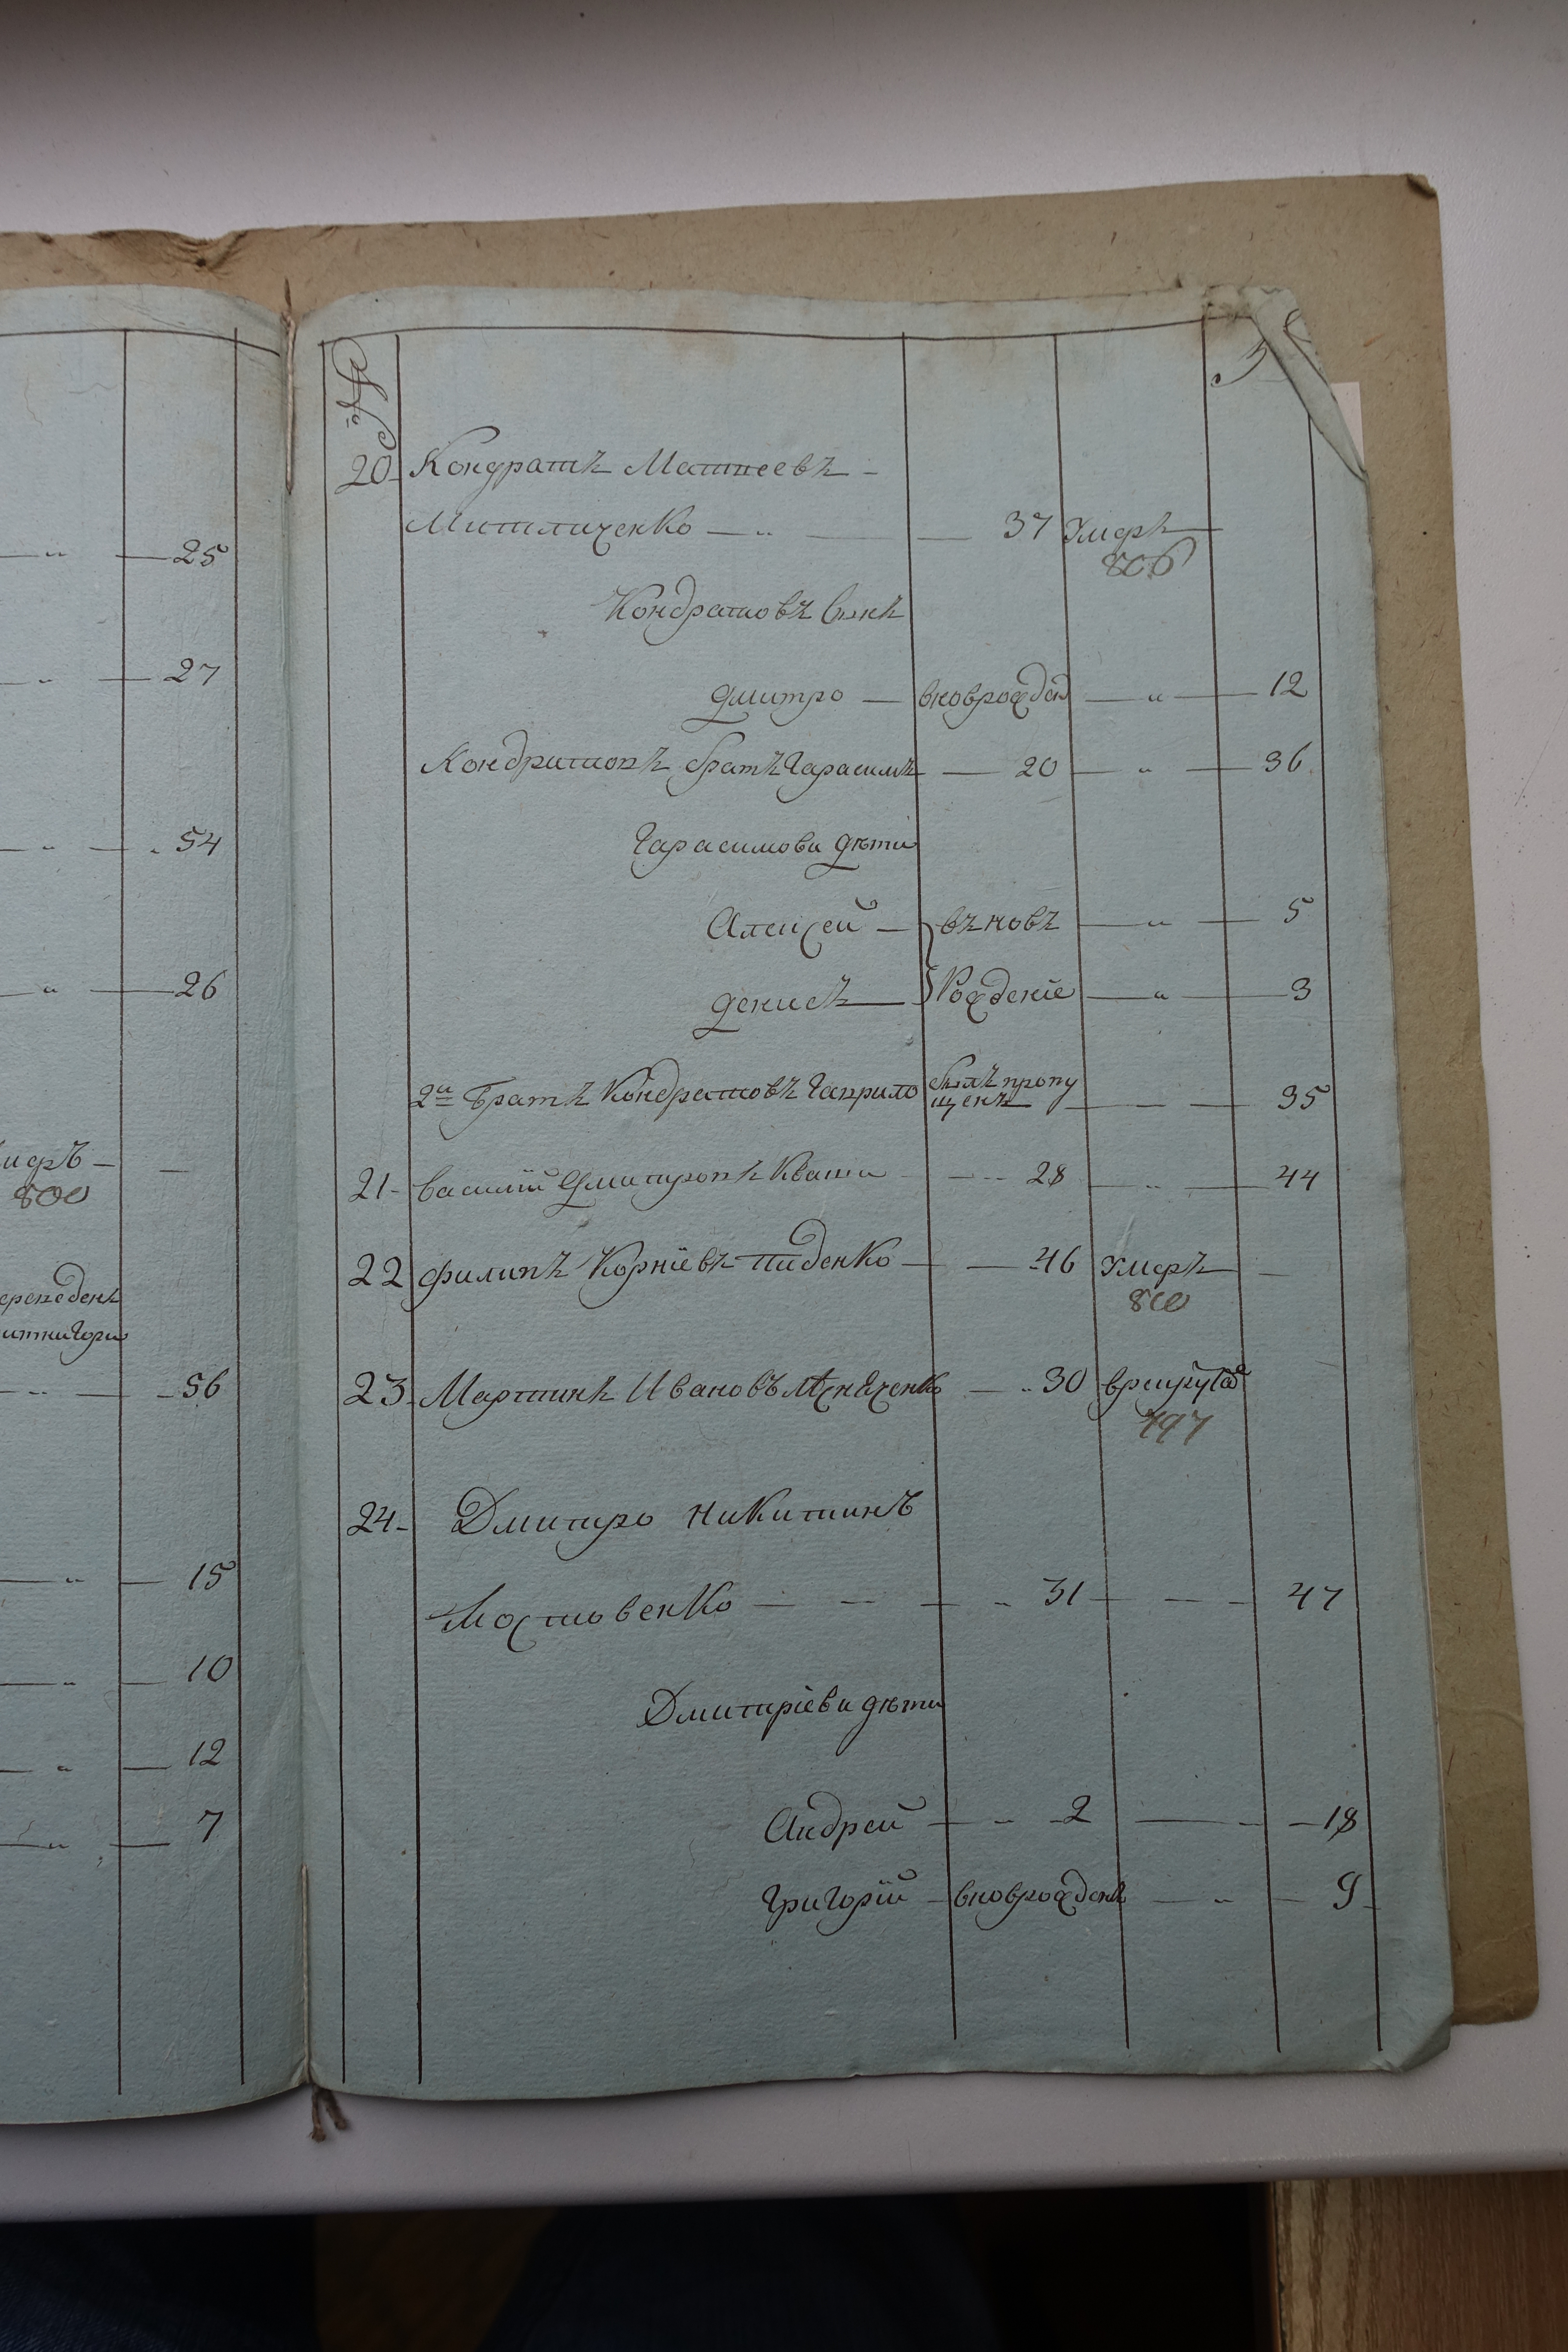 25
27
54
26
800
56
15
10
12
7
№
20 Кондратъ Матвеевъ
Мителиченко — 37 Умеръ
806
Кондратовъ Сынъ
дмитро — вновброжден — 12
Кондратовъ братъ Гарасимъ — 20 — 36
Гарасимови дѣти
Алексей — въновь — 5
денисъ — Рожденіе — 3
2й Братъ Кондратовъ Гаврило былъ пропу
щенъ — 35
21 василій Дмитровъ Кваша — 28 — 44
22 филипъ Корнѣевъ Пиденко — 46 Умеръ
800
23 Мартинъ Ивановъ — 30 врекрутах
797
24 Дмитро Никитинъ
Мостовенко — 31 — 47
Дмитріеви дѣти
Андрей — 2 — 18
Григорій — вновброжденъ — 9